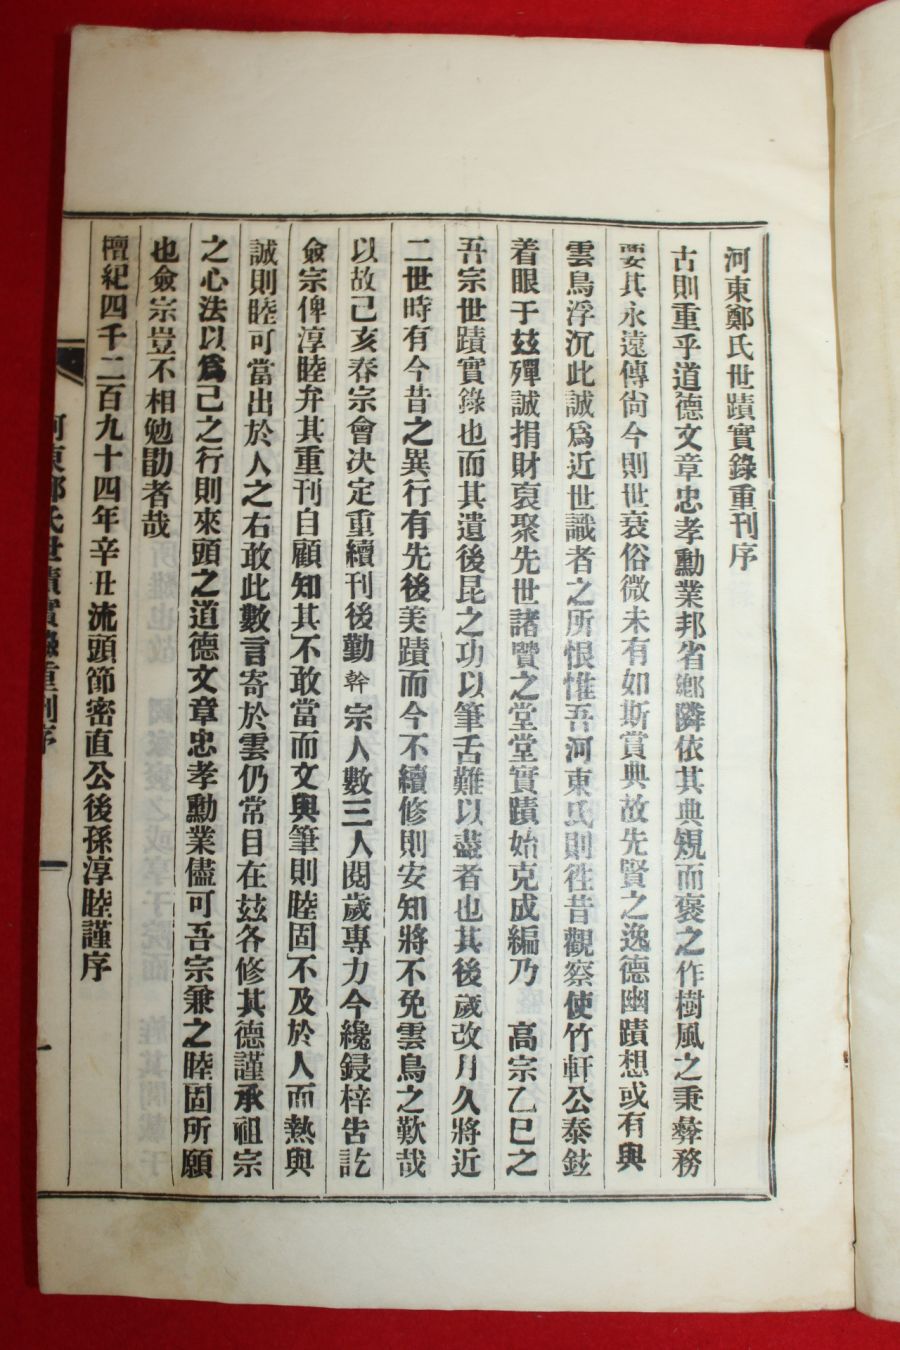 河東鄭氏世蹟實錄重刊序
古則重乎道德文章忠孝勳業邦省鄕隣依其典規而褒之作樹風之秉彝務
要其永遠傳尙今則世衰俗微未有如斯賞典故先賢之逸德幽蹟想或有與
雲鳥浮沉此誠爲近世識者之所恨惟吾河東氏則徃昔觀察使竹軒公泰鉉
着眼于玆殫誠捐財裒聚先世諸贒之堂堂實蹟始克成編乃 高宗乙巳之
吾宗世蹟實錄也而其遺後昆之功以筆舌難以盡者也其後歲改月久將近
二世時有今昔之異行有先後美蹟而今不續修則安知將不免雲鳥之歎哉
以故己亥春宗會決定重續刊後勤幹宗人數三人閱歲專力今纔鋟梓告訖
僉宗俾淳睦弁其重刊自顧知其不敢當而文與筆則睦固不及於人而熱與
誠則睦可當出於人之右敢此數言寄於雲仍常目在玆各修其德謹承祖宗
之心法以爲己之行則來頭之道德文章忠孝勳業儘可吾宗兼之睦固所願
也僉宗豈不相勉勖者哉
檀紀四千二百九十四年辛丑流頭節密直公後孫淳睦謹序
河東鄭氏世蹟實錄重刊序
一